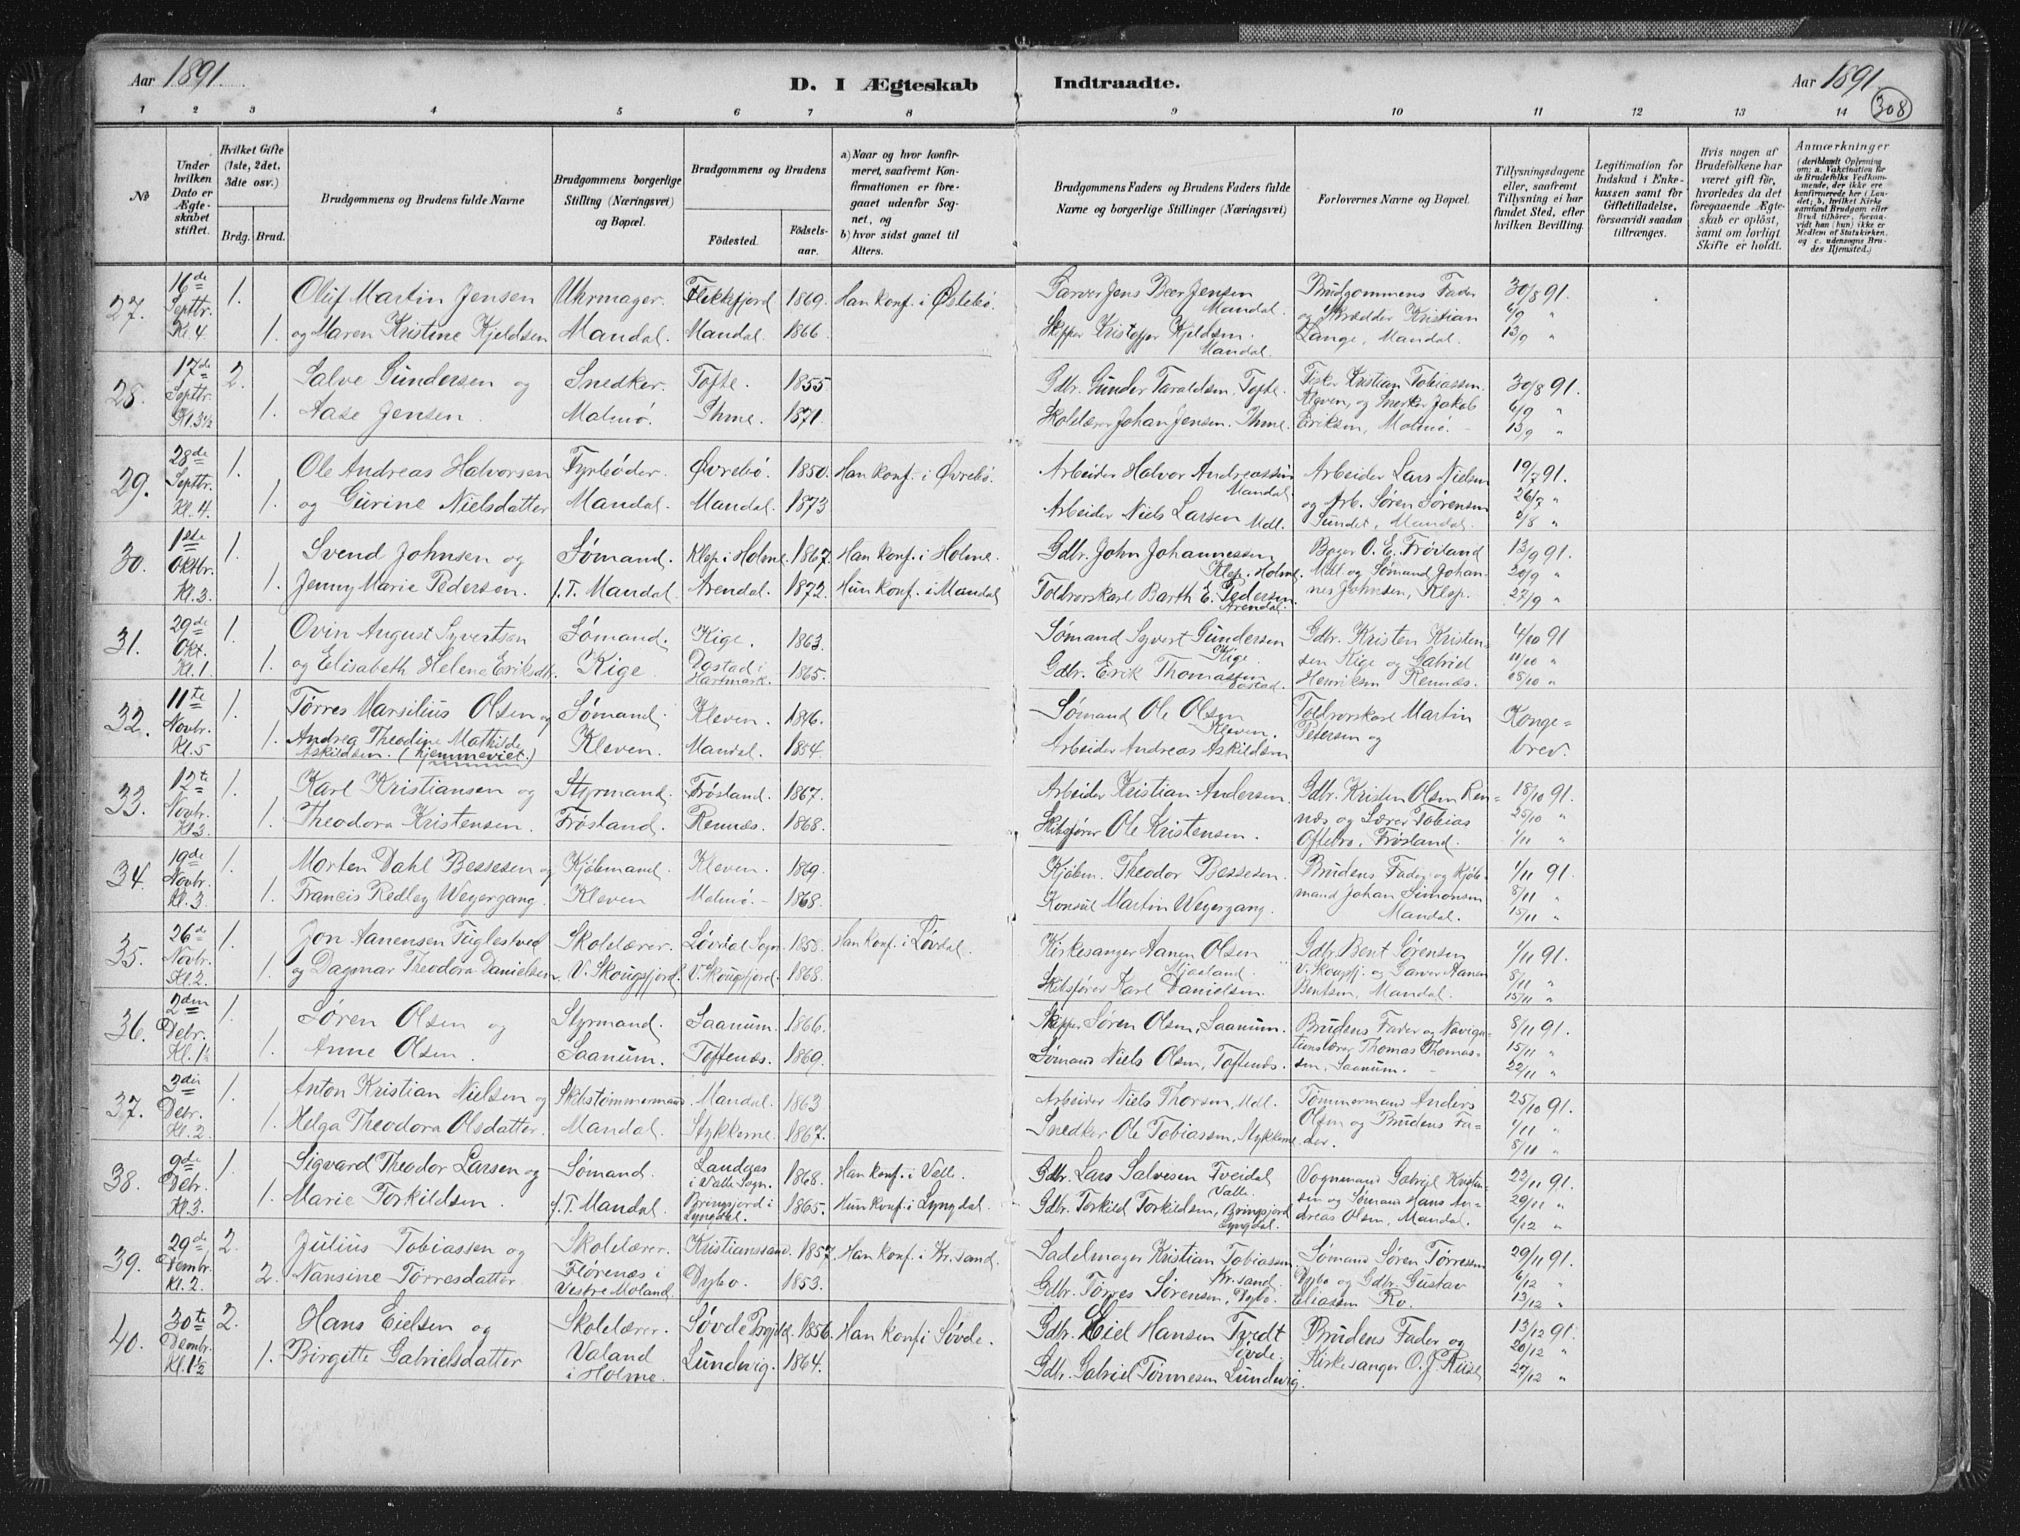 Aar 1891. D. I Ægteskab Indtraadte. Aar 1891.
308
1 2 3 4 5 6 7 8 9 10 11 12 13 14
No
Under hvilken Dato er Ægteskabet stiftet.
Hvilket Gifte (1ste, 2det, 3die osv.)
Brdg. Brud.
Brudgommens og Brudens fulde Navne
Brudgommens borgerlige Stilling (Næringsvei) og Bopæl.
Brudgommens og Brudens
Fødested. Fødselsaar.
a) Naar og hvor konfirmeret, saafremt Konfirmationen er foregaaet udenfor Sognet, og
b) hvor sidst gaaet til Alters.
Brudgommens Faders og Brudens Faders fulde Navne og borgerlige Stillinger (Næringsvei)
Forlovernes Navne og Bopæl.
Tillysningsdagene eller, saafremt Tillysning ei har fundet Sted, efter hvilken Bevilling.
Legitimation for Indskud i Enkekassen samt for Giftetilladelse, forsaavidt saadan tiltrænges.
Hvis nogen af Brudefolkene har været gift før, hvorledes da det foregaaende Ægteskab er opløst, samt om lovligt Skifte er holdt.
Anmærkninger
27. 16de Septbr. Kl. 4 1. Oluf Martin Jensen Uhrmager. Flekkefjord 1869. Han konf. i Øslebø. Garver Jens Beer Jensen Mandal. Brudgommens Fader 30/8 91.
1. og Maren Kristine Kjeldsen Mandal. Mandal. 1866. Skipper Kristoffer Kjeldsen. Mandal. og Skrædder Kristian Lange, Mandal. 6/9 " 13/9 "
28. 17de Septbr. Kl. 3½ 2. Salve Gundersen og Snedker. Tofte. 1855 Gdbr. Gunder Taraldsen, Tofte. Fisker Kristian Tobiassen 30/8 91.
1. Aase Jensen. Malmø. Ihme. 1871. Skolelærer Johan Jensen. Ihme. Kleven, og Snedker Jakob Eriksen, Malmø. 6/9 " 13/9 "
29. 28de Septbr. Kl. 4. 1. Ole Andreas Halvorsen Fyrbøder. Øvrebø. 1850. Han konf. i Øvrebø. Arbeider Halvor Andreassen Mandal. Arbeider Lars Nielsen 19/7 91.
1. og Gurine Nielsdatter Mandal. Mandal. 1873 Arbeider Niels Larsen Mdl. og Arb. Søren Sørensen Sundet, Mandal. 26/7 " 2/8 "
30. 1ste Oktbr. Kl. 3. 1. Svend Johnsen og Sømand. Klep i Holme. 1867. Han konf. i Holme. Gdbr. John Johannessen Klep i Holme. Bager O. E. Frøisland 13/9 91.
1. Jenny Marie Pedersen. f.T. Mandal. Arendal. 1872. Hun konf. i Mandal Toldrorskarl Barth E. Pedersen Arendal. Mdl. og Sømand Johannes Johnsen, Klep. 20/9 " 27/9 "
31. 29de Okt. Kl. 1 1. Ovin August Syvertsen Sømand. Kige. 1863. Sømand Syvert Gundersen Kige. Gdbr. Kristen Kristen- 4/10 91
1. og Elisabeth Helene Eriksdtr. Kige. Dastad i Hartmark. 1865. Gdbr. Erik Thomassen Dastad. sen Kige og Gabriel Henriksen Rennæs. 11/10 " 18/10 "
32. 11te Novbr. Kl. 5 1. Tørres Marsilius Olsen og Sømand. Kleven. 1846. Sømand Ole Olsen Kleven. Toldrorskarl Martin Konge-
1. Andrea Theodine Mathilde Askildsen. (hjemmeviet.) Kleven. Mandal. 1854. Arbeider Andreas Askildsen Petersen og brev.
33. 12te Novbr. Kl. 3. 1. Karl Kristiansen og Styrmand. Frøsland. 1867. Arbeider Kristian Andersen. Gdbr. Kristen Olsen Ren- 18/10 91.
1. Theodora Kristensen. Frøsland. Rennæs. 1868. Skibsfører Ole Kristensen. næs og Lærer Tobias Oftebro, Frøsland. 25/10 " 1/11 "
34. 19de Novbr. Kl. 3. 1. Morten Dahl Bessesen og Kjøbmand. Kleven. 1869. Kjøbm. Theodor Bessesen. Brudens Fader og Kjøb- 1/11 91.
1. Francis Redley Weyergang. Kleven Malmø. 1868. Konsul Martin Weyergang. mand Johan Simonsen Mandal. 8/11 " 15/11 "
35. 26de Novbr. Kl. 2. 1. Jon Aanensen Fuglestved Skolelærer. Løvdal Sogn. 1858. Han konf. i Løvdal. Kirkesanger Aanen Olsen Mjaaland. Gdbr. Bent Sørensen 1/11 91.
1. og Dagmar Theodora Danielsen. V. Skougsfjord. V. Skougsfjord. 1868. Skibsfører Karl Danielsen. V. Skougsfj. og Garver Aanen Bentsen, Mandal. 8/11 " 15/11 "
36. 2den Debr. Kl. 1½ 1. Søren Olsen og Styrmand. Saanum. 1866. Skipper Søren Olsen, Saanum. Brudens Fader og Naviga- 8/11 91.
1. Anne Olsen. Saanum. Toftenæs. 1869. Sømand Niels Olsen, Toftenæs. tionslærer Thomas Thomassen, Saanum. 15/11 " 22/11 "
37. 3die Debr. Kl. 2. 1. Anton Kristian Nielsen og Skibstømmermand Mandal. 1863 Arbeider Niels Thorsen, Mdl. Tømmermand Anders 25/10 91.
1. Helga Theodora Olsdatter. Mandal. Stykkerne. 1867. Snedker Ole Tobiassen, Stykkerne. Olsen og Brudens Fader. 1/11 " 8/11 "
38. 9de Debr. Kl. 3. 1. Sigvard Theodor Larsen og Sømand. Landøas i Valle Sogn. 1868. Han konf. i Valle. Gdbr. Lars Salvesen Tveidal Valle. Vognmand Gabriel Kristen- 22/11 91.
1. Marie Torkildsen. f.T. Mandal. Bringsjord i Lyngdal. 1865. Hun konf. i Lyngdal. Gdbr. Torkild Torkildsen, Bringsjord Lyngdal. sen og Sømand Hans Andreas Olsen, Mandal. 29/11 " 6/12 "
39. 29de Dembr. Kl. 2. 2. Julius Tobiassen og Skolelærer. Kristianssand. 1857. Han konf. i Kr.sand. Sadelmager Kristian Tobiassen Kr.sand. Sømand Søren Tørressen 29/11 91.
2. Nansine Tørresdatter Florenæs i Vestre Moland. Dybo. 1853. Gdbr. Tørres Sørensen, Dybo. Dybo og Gdbr. Gustav Eliassen Ro. 6/12 " 13/12 "
40. 30te Dembr. Kl. 1½ 2. Hans Eielsen og Skolelærer. Søvde Prgjeld. 1856. Han konf. i Søvde. Gdbr. Eiel Hansen Tvedt Søvde. Brudens Fader og 13/12 91.
1. Birgitte Gabrielsdatter Valand i Holme. Lundevig. 1864. Gdbr. Gabriel Tønnesen Lundevig. Kirkesanger O. J. 20/12 " 27/12 "